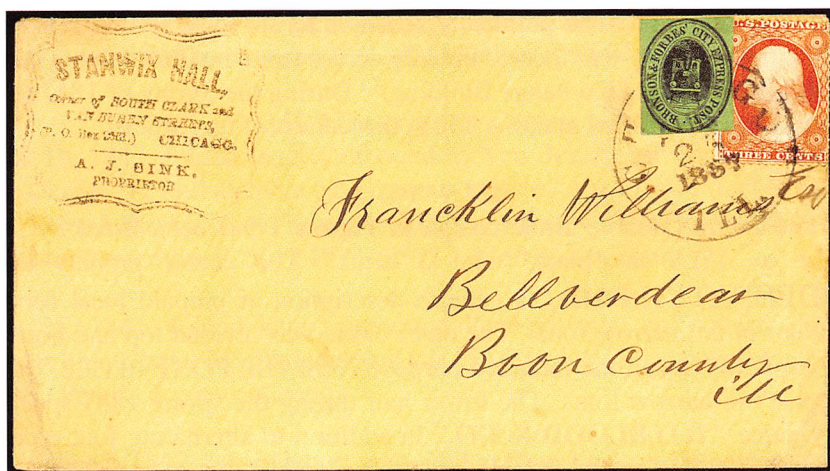 STANWIX HALL,
Corner of SOUTH CLARK and
VAN BUREN STREETS,
(P. O. Box 2363.) CHICAGO.
A. J. SINK,
PROPRIETOR
BRONSON & FORBES' CITY EXPRESS POST.
U.S. POSTAGE
THREE CENTS
CHICAGO
1857
ILL
Francklin Williams Esq
Bellverdear
Boon County
ill